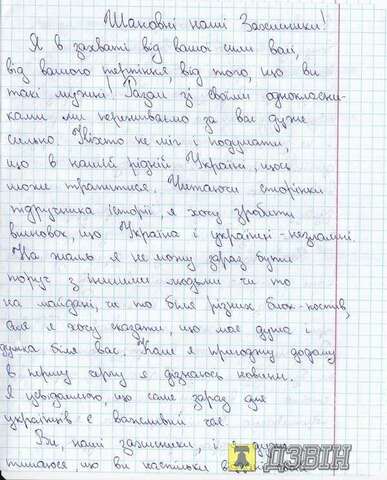 Шановні наші Захисники!
Я в захваті від вашої сили волі,
від вашого терпіння, від того, що ви
такі мужні! Разом зі своїми однокласни-
ками ми переживаємо за вас дуже
сильно. Ніхто не міг і подумати,
що в нашій рідній Україні, щось
може трапитися. Читаючи сторінки
підручника історії, я хочу зробити
висновок, що Україна і українці - незламні.
На жаль я не можу зараз бути
поруч з іншими людьми чи то
на майдані, чи то біля різних блок-постів,
але я хочу сказати, що моя душа і
думка біля вас. Коли я приходжу додому
в першу чергу я дізнаюсь новини.
Я усвідомлюю, що саме зараз для
українців є важливий час.
Ви, наші захисники, і я дуже
пишаюся що ви настільки
ДЗВІН